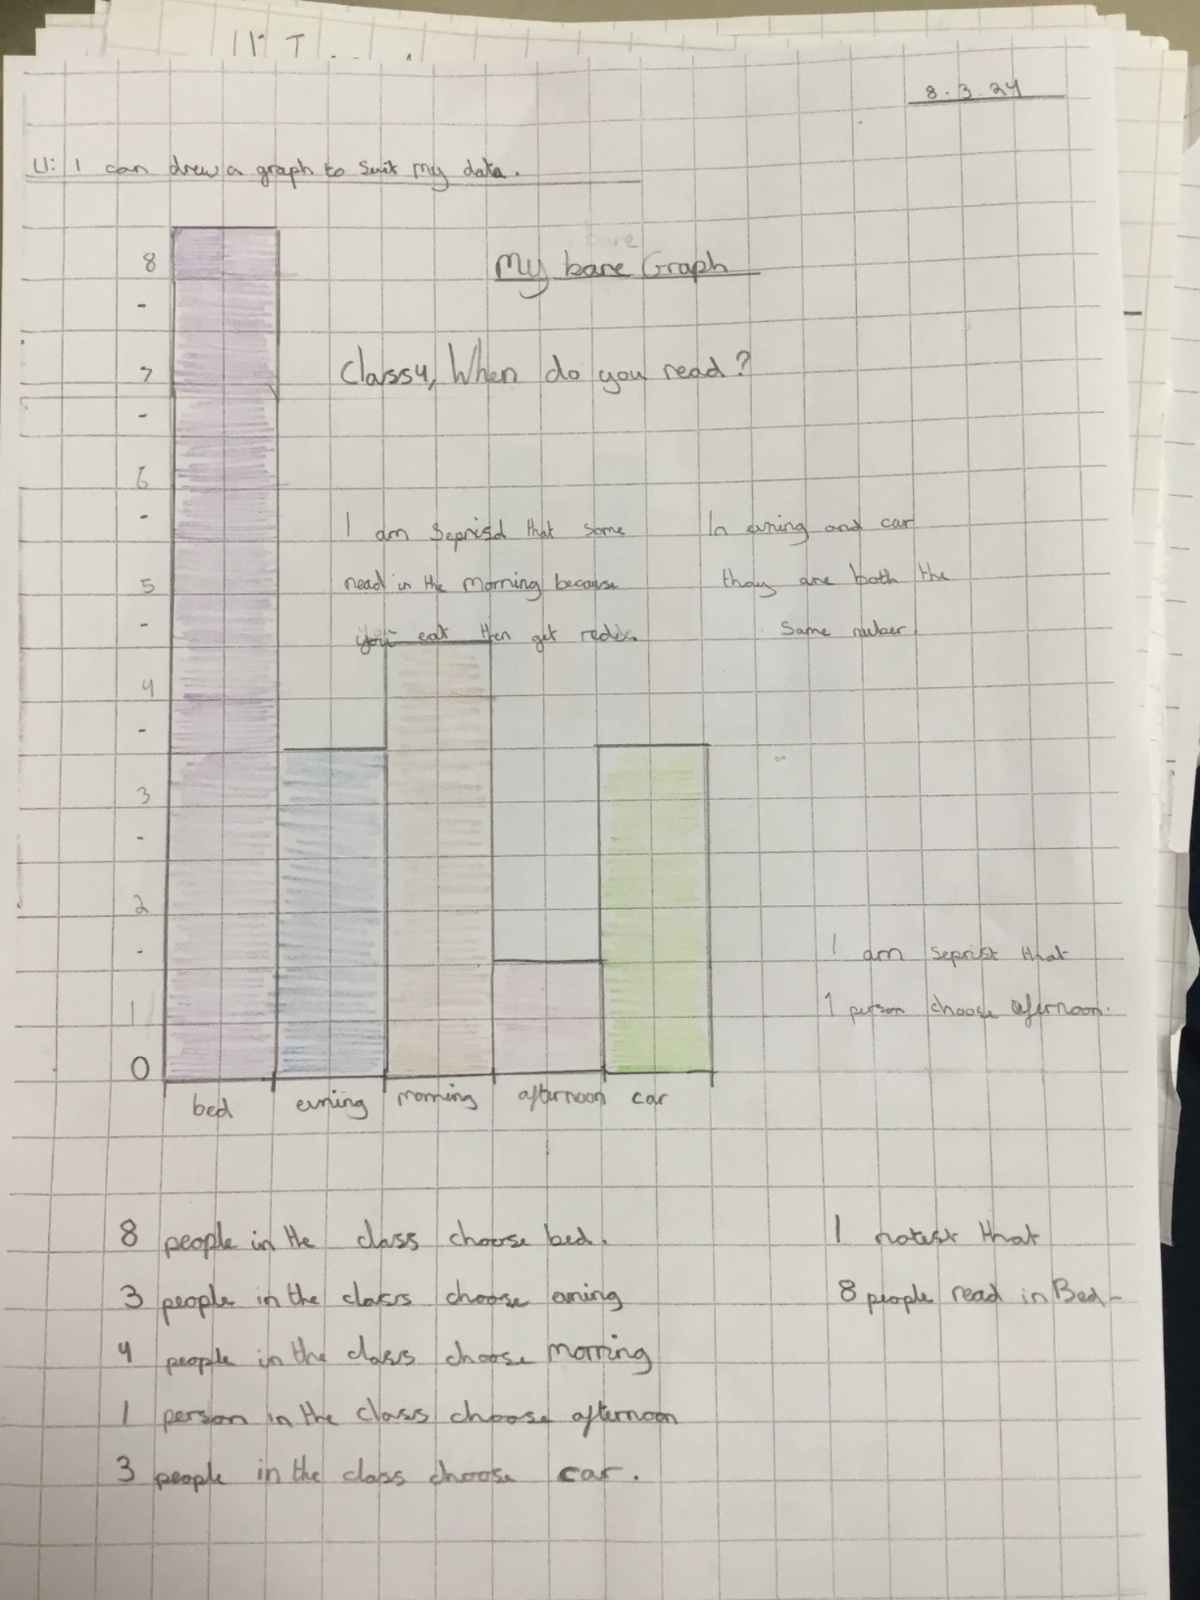 8.3.24
LI: I can drew a graph to suit my data.
bare
My bare Graph
Class 4, When do you read?
8
-
7
-
6
-
5
-
4
-
3
-
2
-
1
0
I am Seprisd that some
read in the morning because
you eat then get redey.
In evning and car
thay are both the
Same nuber
I am Seprist that
1 person choose afternoon.
bed evning morning afternoon car
8 people in the class choose bed.
3 people in the class choose evning
4 people in the class choose morning
1 person in the class choose afternoon
3 people in the class choose car.
I notest that
8 people read in Bed-